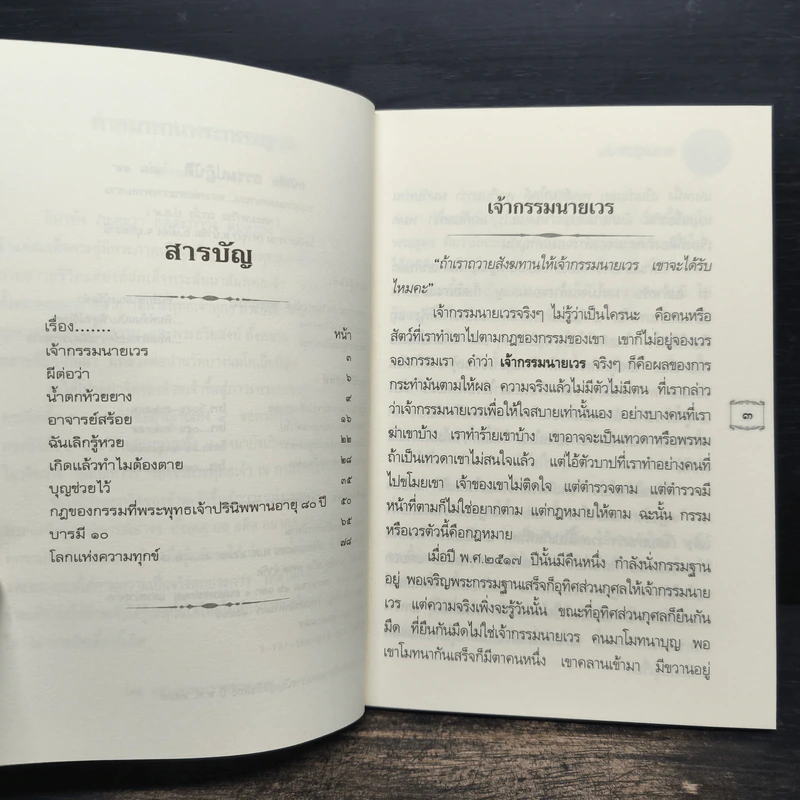 สารบัญ
เรื่อง.......
หน้า
เจ้ากรรมนายเวร ๓
ผีต่อว่า ๖
น้ำตกห้วยยาง ๙
อาจารย์สร้อย ๑๖
ฉันเลิกรู้หวย ๒๒
เกิดแล้วทำไมต้องตาย ๒๘
บุญช่วยไว้ ๓๕
กฎของกรรมที่พระพุทธเจ้าปรินิพพานอายุ ๘๐ ปี ๕๐
บารมี ๑๐ ๖๕
โลกแห่งความทุกข์ ๗๘
เจ้ากรรมนายเวร
“ถ้าเราถวายสังฆทานให้เจ้ากรรมนายเวร เขาจะได้รับ
ไหมคะ”
เจ้ากรรมนายเวรจริงๆ ไม่รู้ว่าเป็นใครนะ คือคนหรือ
สัตว์ที่เราทำเขาไปตามกฎของกรรมของเขา เขาก็ไม่อยู่จองเวร
จองกรรมเรา คำว่า เจ้ากรรมนายเวร จริงๆ ก็คือผลของการ
กระทำมันตามให้ผล ความจริงแล้วไม่มีตัวไม่มีตน ที่เรากล่าว
ว่าเจ้ากรรมนายเวรเพื่อให้ใจสบายเท่านั้นเอง อย่างบางคนที่เรา
ฆ่าเขาบ้าง เราทำร้ายเขาบ้าง เขาอาจจะเป็นเทวดาหรือพรหม
ถ้าเป็นเทวดาเขาไม่สนใจแล้ว แต่ไอ้ตัวบาปที่เราทำอย่างคนที่
ไปขโมยเขา เจ้าของเขาไม่ติดใจ แต่ตำรวจตาม แต่ตำรวจมี
หน้าที่ตามก็ไม่ใช่อยากตาม แต่กฎหมายให้ตาม ฉะนั้น กรรม
หรือเวรตัวนี้คือกฎหมาย
เมื่อปี พ.ศ.๒๕๑๗ ปีนั้นมีคืนหนึ่ง กำลังนั่งกรรมฐาน
อยู่ พอเจริญพระกรรมฐานเสร็จก็อุทิศส่วนกุศลให้เจ้ากรรมนาย
เวร แต่ความจริงเพิ่งจะรู้วันนั้น ขณะที่อุทิศส่วนกุศลก็ยืนกัน
มืด ที่ยืนกันมืดไม่ใช่เจ้ากรรมนายเวร คนมาโมทนาบุญ พอ
เขาโมทนากันเสร็จก็มีตาคนหนึ่ง เขาคลานเข้ามา มีขวานอยู่
๓